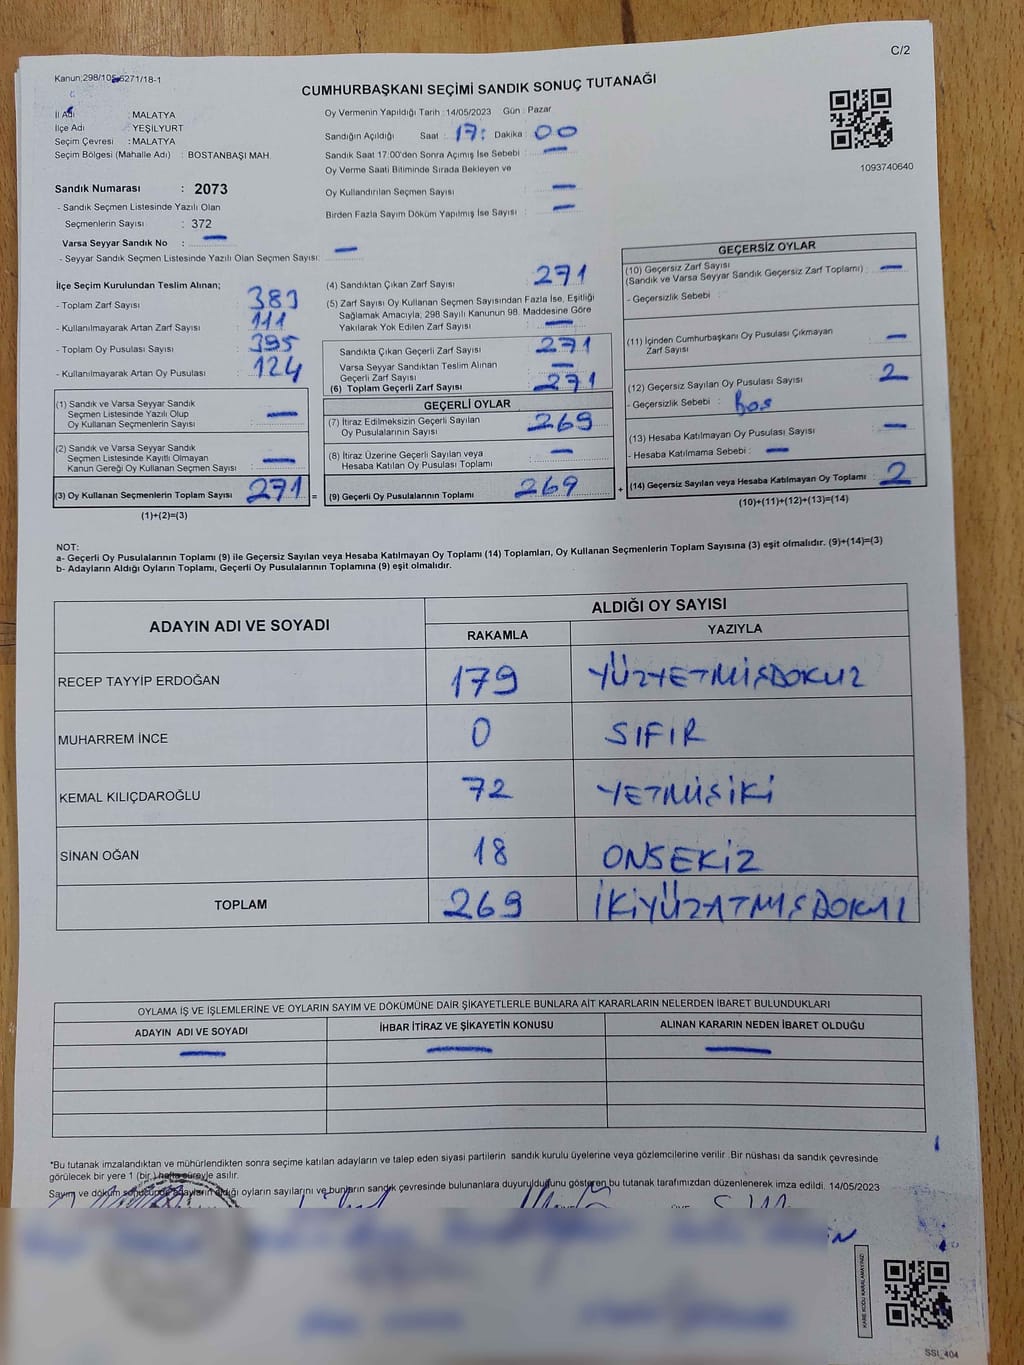 C/2
Kanun:298/105-6271/18-1
CUMHURBAŞKANI SEÇİMİ SANDIK SONUÇ TUTANAĞI
İl Adı : MALATYA
İlçe Adı : YEŞİLYURT
Seçim Çevresi : MALATYA
Seçim Bölgesi (Mahalle Adı) : BOSTANBAŞI MAH.
Oy Vermenin Yapıldığı Tarih : 14/05/2023 Gün : Pazar
Sandığın Açıldığı Saat : 17: Dakika : 00
Sandık Saat 17:00'den Sonra Açımış İse Sebebi : —
Oy Verme Saati Bitiminde Sırada Bekleyen ve
Oy Kullandırılan Seçmen Sayısı : —
Birden Fazla Sayım Döküm Yapılmış İse Sayısı : —
1093740640
Sandık Numarası : 2073
- Sandık Seçmen Listesinde Yazılı Olan
Seçmenlerin Sayısı : 372
Varsa Seyyar Sandık No : —
- Seyyar Sandık Seçmen Listesinde Yazılı Olan Seçmen Sayısı: —
İlçe Seçim Kurulundan Teslim Alınan;
- Toplam Zarf Sayısı : 383
- Kullanılmayarak Artan Zarf Sayısı : 111
- Toplam Oy Pusulası Sayısı : 395
- Kullanılmayarak Artan Oy Pusulası : 124
(1) Sandık ve Varsa Seyyar Sandık
Seçmen Listesinde Yazılı Olup
Oy Kullanan Seçmenlerin Sayısı : —
(2) Sandık ve Varsa Seyyar Sandık
Seçmen Listesinde Kayıtlı Olmayan
Kanun Gereği Oy Kullanan Seçmen Sayısı : —
(3) Oy Kullanan Seçmenlerin Toplam Sayısı 271 =
(1)+(2)=(3)
(4) Sandıktan Çıkan Zarf Sayısı : 271
(5) Zarf Sayısı Oy Kullanan Seçmen Sayısından Fazla İse, Eşitliği
Sağlamak Amacıyla; 298 Sayılı Kanunun 98. Maddesine Göre
Yakılarak Yok Edilen Zarf Sayısı : —
Sandıkta Çıkan Geçerli Zarf Sayısı : 271
Varsa Seyyar Sandıktan Teslim Alınan
Geçerli Zarf Sayısı : —
(6) Toplam Geçerli Zarf Sayısı : 271
GEÇERLİ OYLAR
(7) İtiraz Edilmeksizin Geçerli Sayılan
Oy Pusulalarının Sayısı : 269
(8) İtiraz Üzerine Geçerli Sayılan veya
Hesaba Katılan Oy Pusulası Toplamı : —
(9) Geçerli Oy Pusulalarının Toplamı : 269 +
GEÇERSİZ OYLAR
(10) Geçersiz Zarf Sayısı
(Sandık ve Varsa Seyyar Sandık Geçersiz Zarf Toplamı) : —
- Geçersizlik Sebebi :
(11) İçinden Cumhurbaşkanı Oy Pusulası Çıkmayan
Zarf Sayısı : —
(12) Geçersiz Sayılan Oy Pusulası Sayısı : 2
- Geçersizlik Sebebi : Boş
(13) Hesaba Katılmayan Oy Pusulası Sayısı : —
- Hesaba Katılmama Sebebi : —
(14) Geçersiz Sayılan veya Hesaba Katılmayan Oy Toplamı : 2
(10)+(11)+(12)+(13)=(14)
NOT:
a- Geçerli Oy Pusulalarının Toplamı (9) ile Geçersiz Sayılan veya Hesaba Katılmayan Oy Toplamı (14) Toplamları, Oy Kullanan Seçmenlerin Toplam Sayısına (3) eşit olmalıdır. (9)+(14)=(3)
b- Adayların Aldığı Oyların Toplamı, Geçerli Oy Pusulalarının Toplamına (9) eşit olmalıdır.
ADAYIN ADI VE SOYADI ALDIĞI OY SAYISI
RAKAMLA YAZIYLA
RECEP TAYYİP ERDOĞAN 179 YÜZYETMİŞDOKUZ
MUHARREM İNCE 0 SIFIR
KEMAL KILIÇDAROĞLU 72 YETMİŞİKİ
SİNAN OĞAN 18 ONSEKİZ
TOPLAM 269 İKİYÜZATMIŞDOKUZ
OYLAMA İŞ VE İŞLEMLERİNE VE OYLARIN SAYIM VE DÖKÜMÜNE DAİR ŞİKAYETLERLE BUNLARA AİT KARARLARIN NELERDEN İBARET BULUNDUKLARI
ADAYIN ADI VE SOYADI İHBAR İTİRAZ VE ŞİKAYETİN KONUSU ALINAN KARARIN NEDEN İBARET OLDUĞU
— — —
*Bu tutanak imzalandıktan ve mühürlendikten sonra seçime katılan adayların ve talep eden siyasi partilerin sandık kurulu üyelerine veya gözlemcilerine verilir. Bir nüshası da sandık çevresinde
görülecek bir yere 1 (bir) hafta süreyle asılır.
Sayım ve döküm sonucunda adayların aldığı oyların sayılarını ve bunların sandık çevresinde bulunanlara duyurulduğunu gösteren bu tutanak tarafımızdan düzenlenerek imza edildi. 14/05/2023
KARE KODU KARALAMAYINIZ!
SSI_404